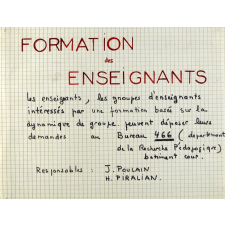 FORMATION
des
ENSEIGNANTS
Les enseignants, les groupes d'enseignants
intéressés par une formation basée sur la
dynamique de groupe peuvent déposer leurs
demandes au Bureau 466 (département
de la Recherche Pédagogique)
batiment cour.
Responsables : J. POULAIN
H. PIRALIAN.